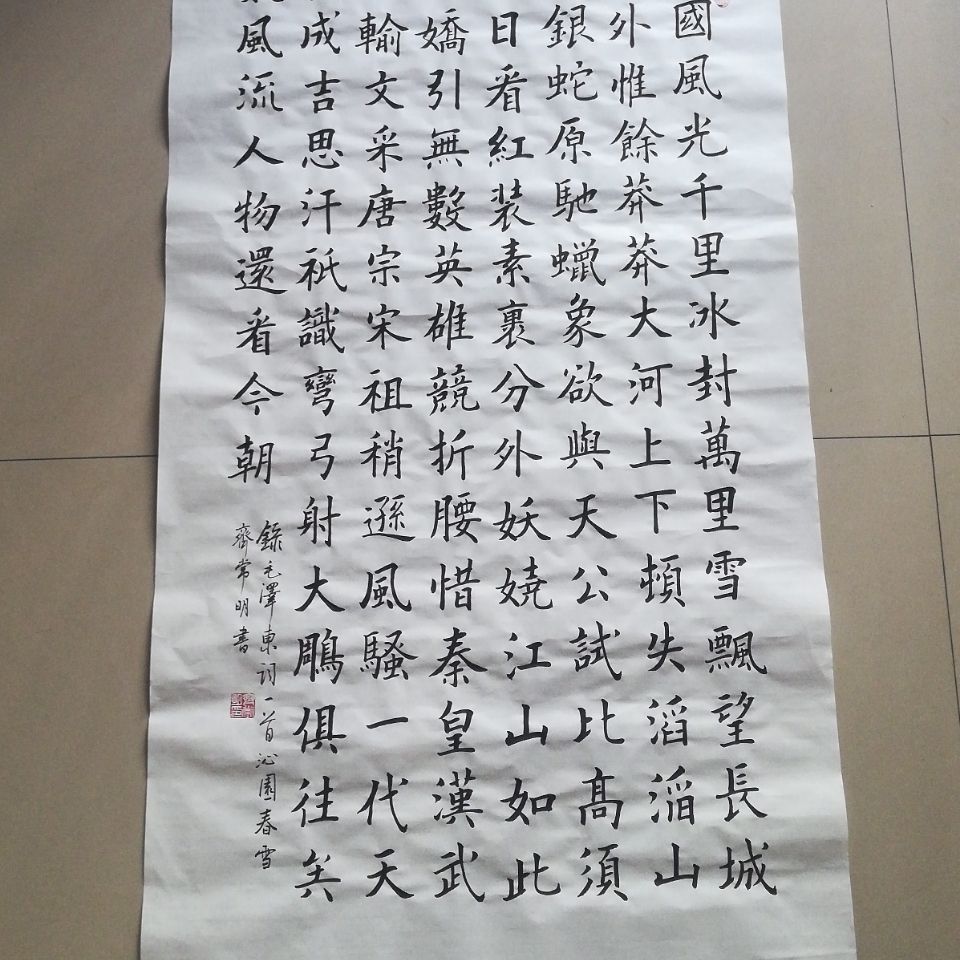 國風光千里冰封萬里雪飄望長城
外惟餘莽莽大河上下頓失滔滔山
銀蛇原馳蠟象欲與天公試比髙須
日看紅装素裹分外妖嬈江山如此
嬌引無數英雄競折腰惜秦皇漢武
輸文采唐宗宋祖稍遜風騷一代天
成吉思汗祇識彎弓射大鵰俱往矣
風流人物還看今朝
錄毛澤東詞一首沁園春雪
齊常明書